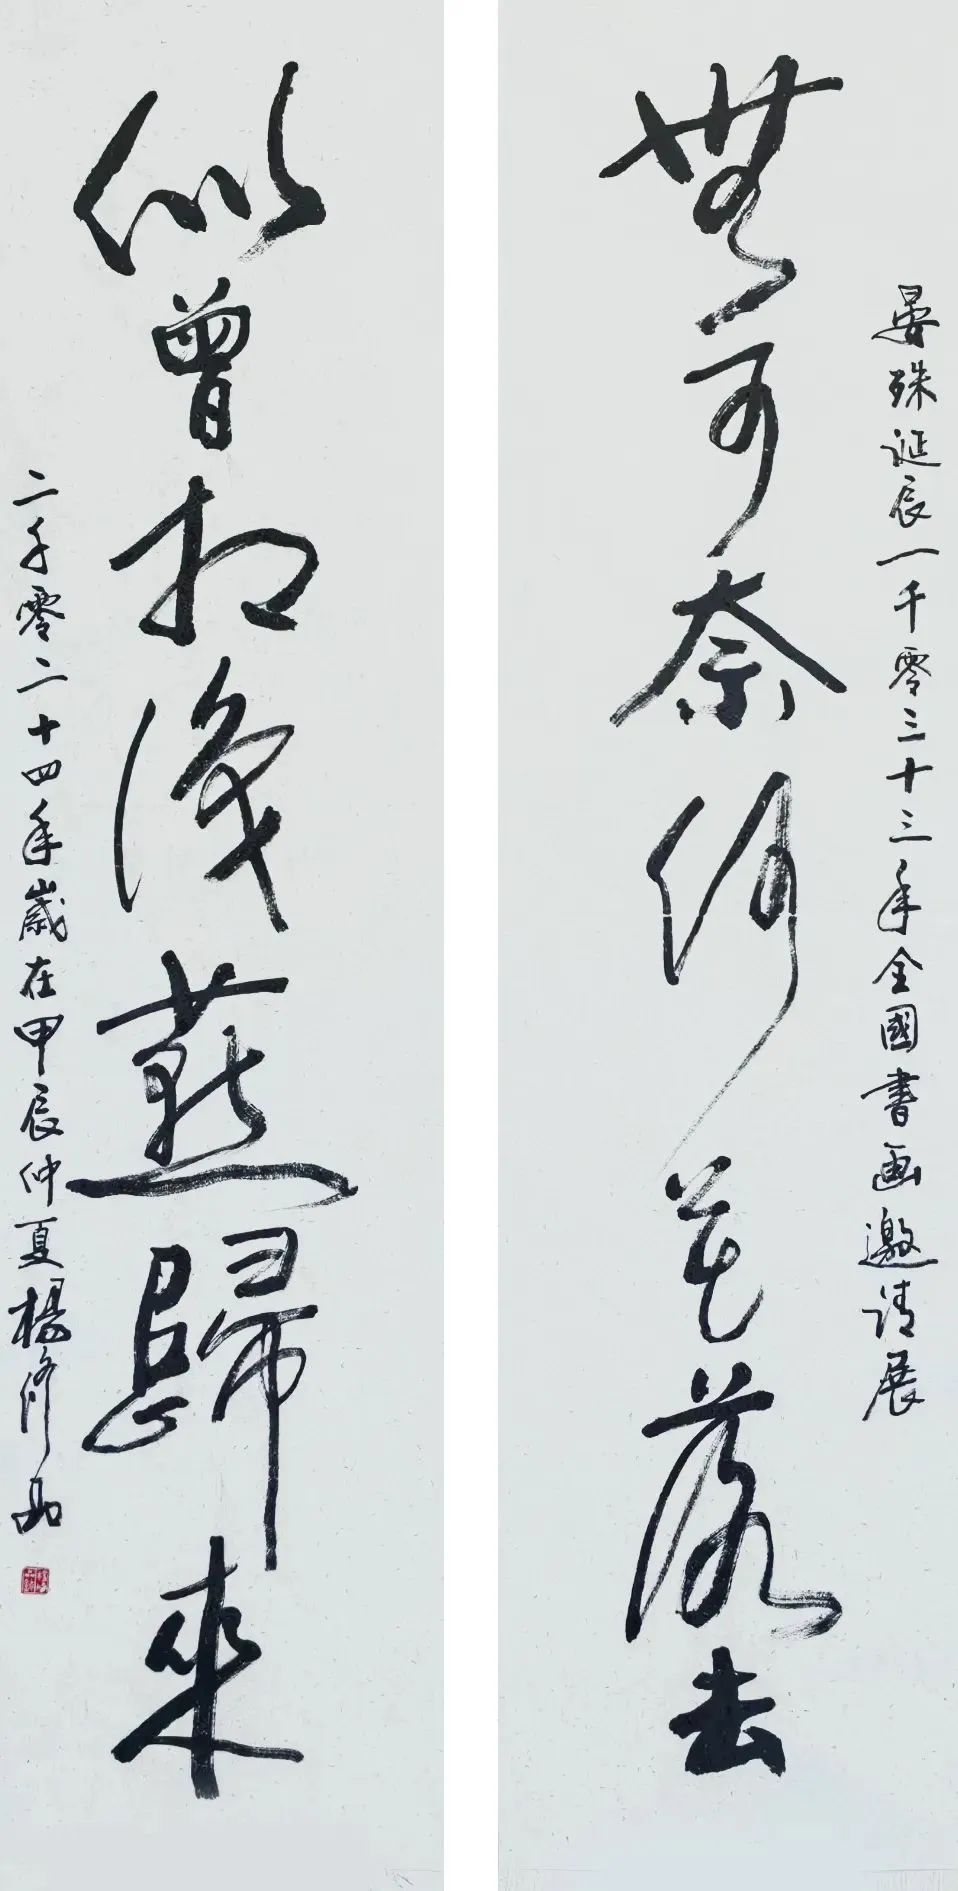 晏殊诞辰一千零三十三年全國書画邀请展
無可奈何花落去
似曾相识燕歸来
二千零二十四年歲在甲辰仲夏楊修品